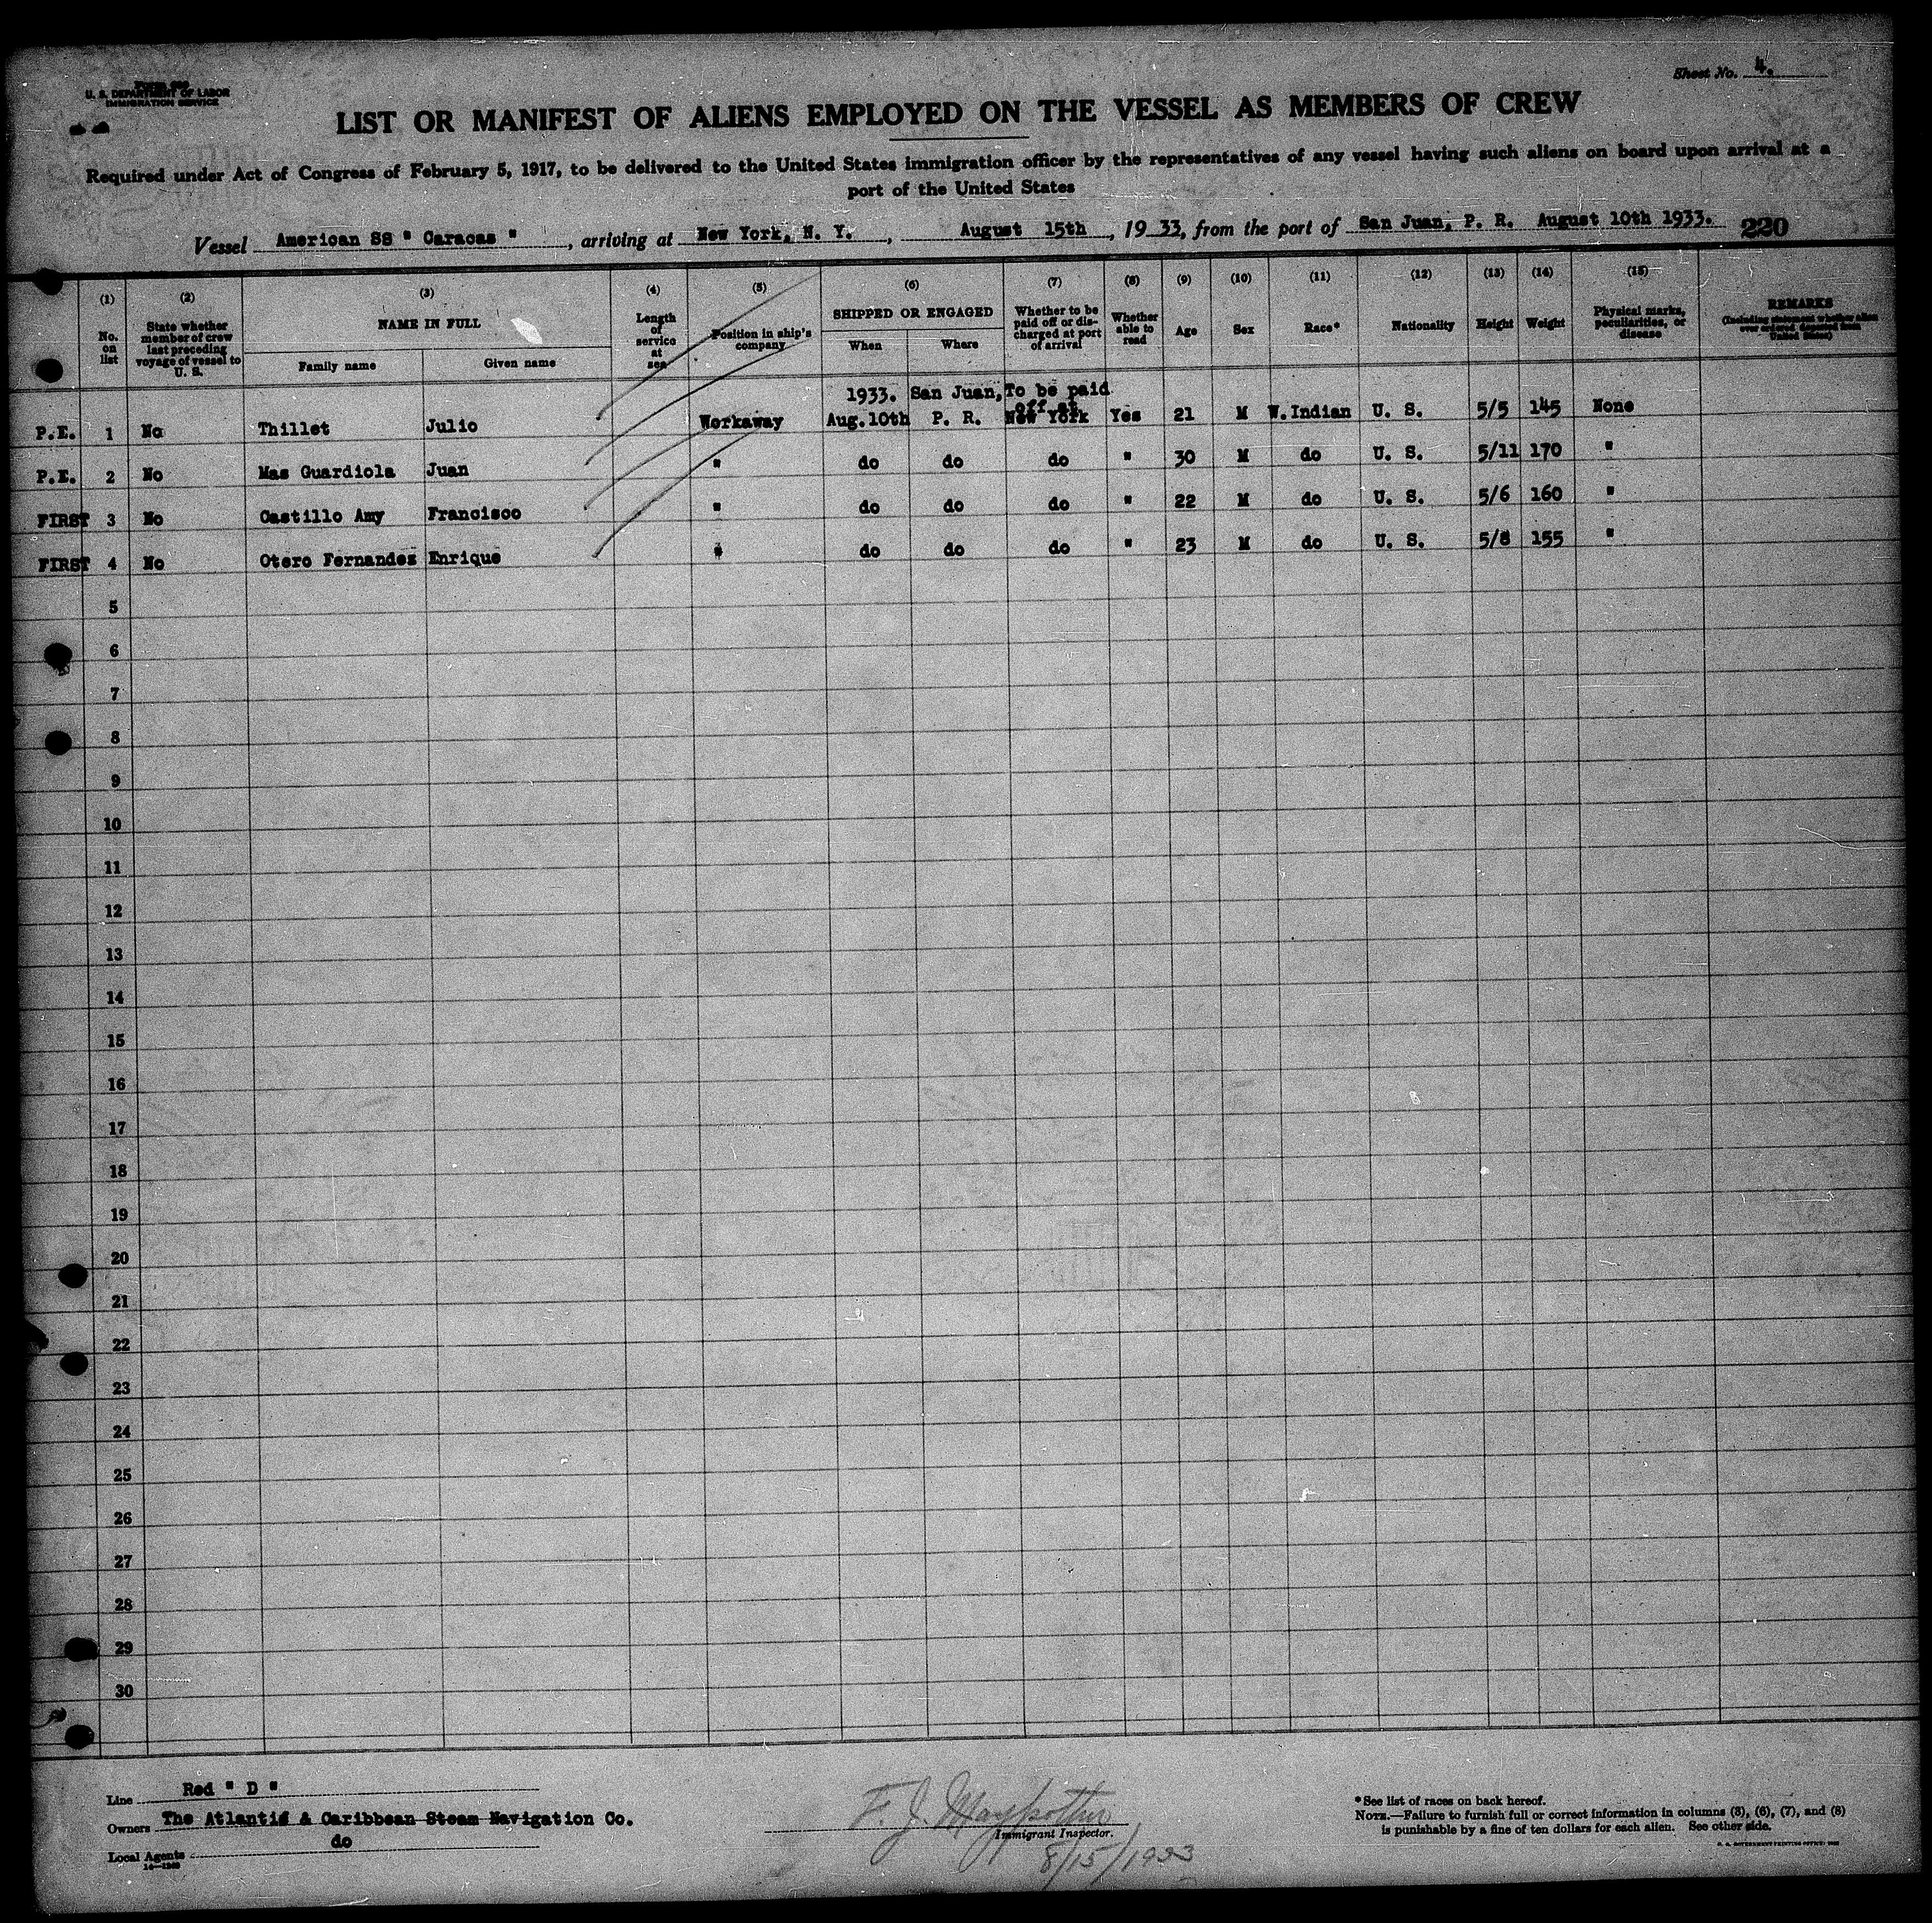 Sheet No. 4.
U. S. DEPARTMENT OF LABOR
IMMIGRATION SERVICE
LIST OR MANIFEST OF ALIENS EMPLOYED ON THE VESSEL AS MEMBERS OF CREW
Required under Act of Congress of February 5, 1917, to be delivered to the United States immigration officer by the representatives of any vessel having such aliens on board upon arrival at a
port of the United States
Vessel American SS " Caracas ", arriving at New York, N. Y., August 15th, 1933, from the port of San Juan, P. R. August 10th 1933. 220
(1) (2) (3) (4) (5) (6) (7) (8) (9) (10) (11) (12) (13) (14) (15)
No. on list
State whether member of crew last preceding voyage of vessel to U. S.
NAME IN FULL
Family name Given name
Length of service at sea
Position in ship's company
SHIPPED OR ENGAGED
When Where
Whether to be paid off or discharged at port of arrival
Whether able to read
Age Sex Race* Nationality Height Weight
Physical marks, peculiarities, or disease
REMARKS
(Including statement whether alien ever ordered deported from United States)
P.E. 1 No Thillet Julio Workaway 1933. Aug.10th San Juan, P. R. To be paid off at New York Yes 21 M W.Indian U. S. 5/5 145 None
P.E. 2 No Mas Guardiola Juan " do do do " 30 M do U. S. 5/11 170 "
FIRST 3 No Castillo Amy Francisco " do do do " 22 M do U. S. 5/6 160 "
FIRST 4 No Otero Fernandez Enrique " do do do " 23 M do U. S. 5/8 155 "
5
6
7
8
9
10
11
12
13
14
15
16
17
18
19
20
21
22
23
24
25
26
27
28
29
30
Line Red " D "
Owners The Atlantic & Caribbean Steam Navigation Co.
Local Agents do
F. J. Maypother
Immigrant Inspector.
8/15/1933
*See list of races on back hereof.
NOTE.—Failure to furnish full or correct information in columns (3), (6), (7), and (8)
is punishable by a fine of ten dollars for each alien. See other side.